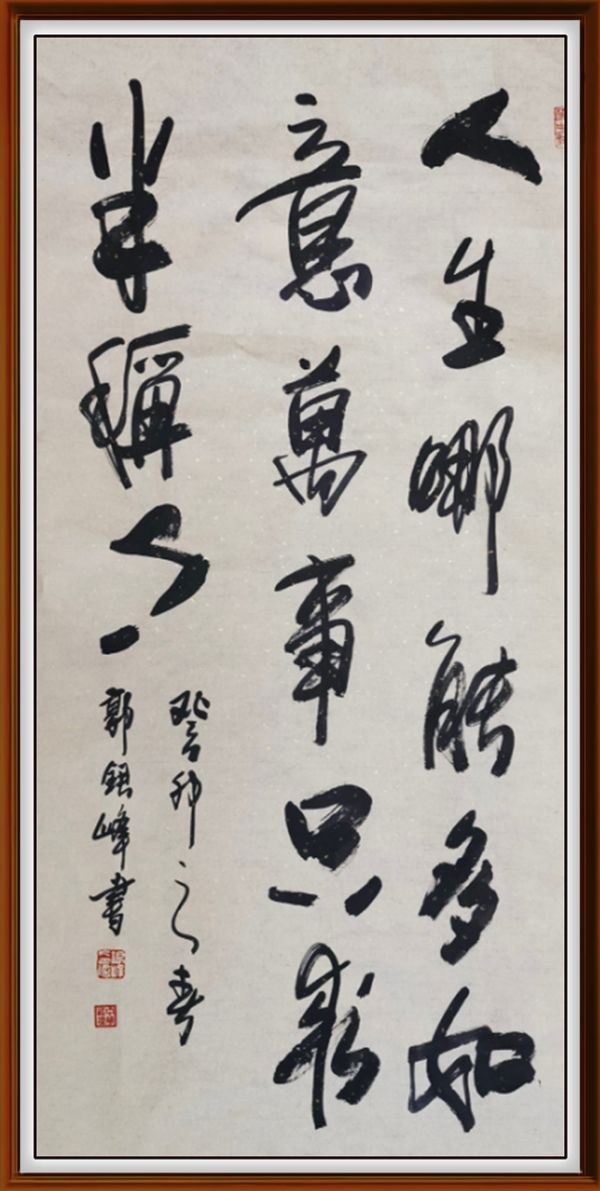 人生哪能多如
意萬事只求
半稱心
癸卯之春
郭銀峰書